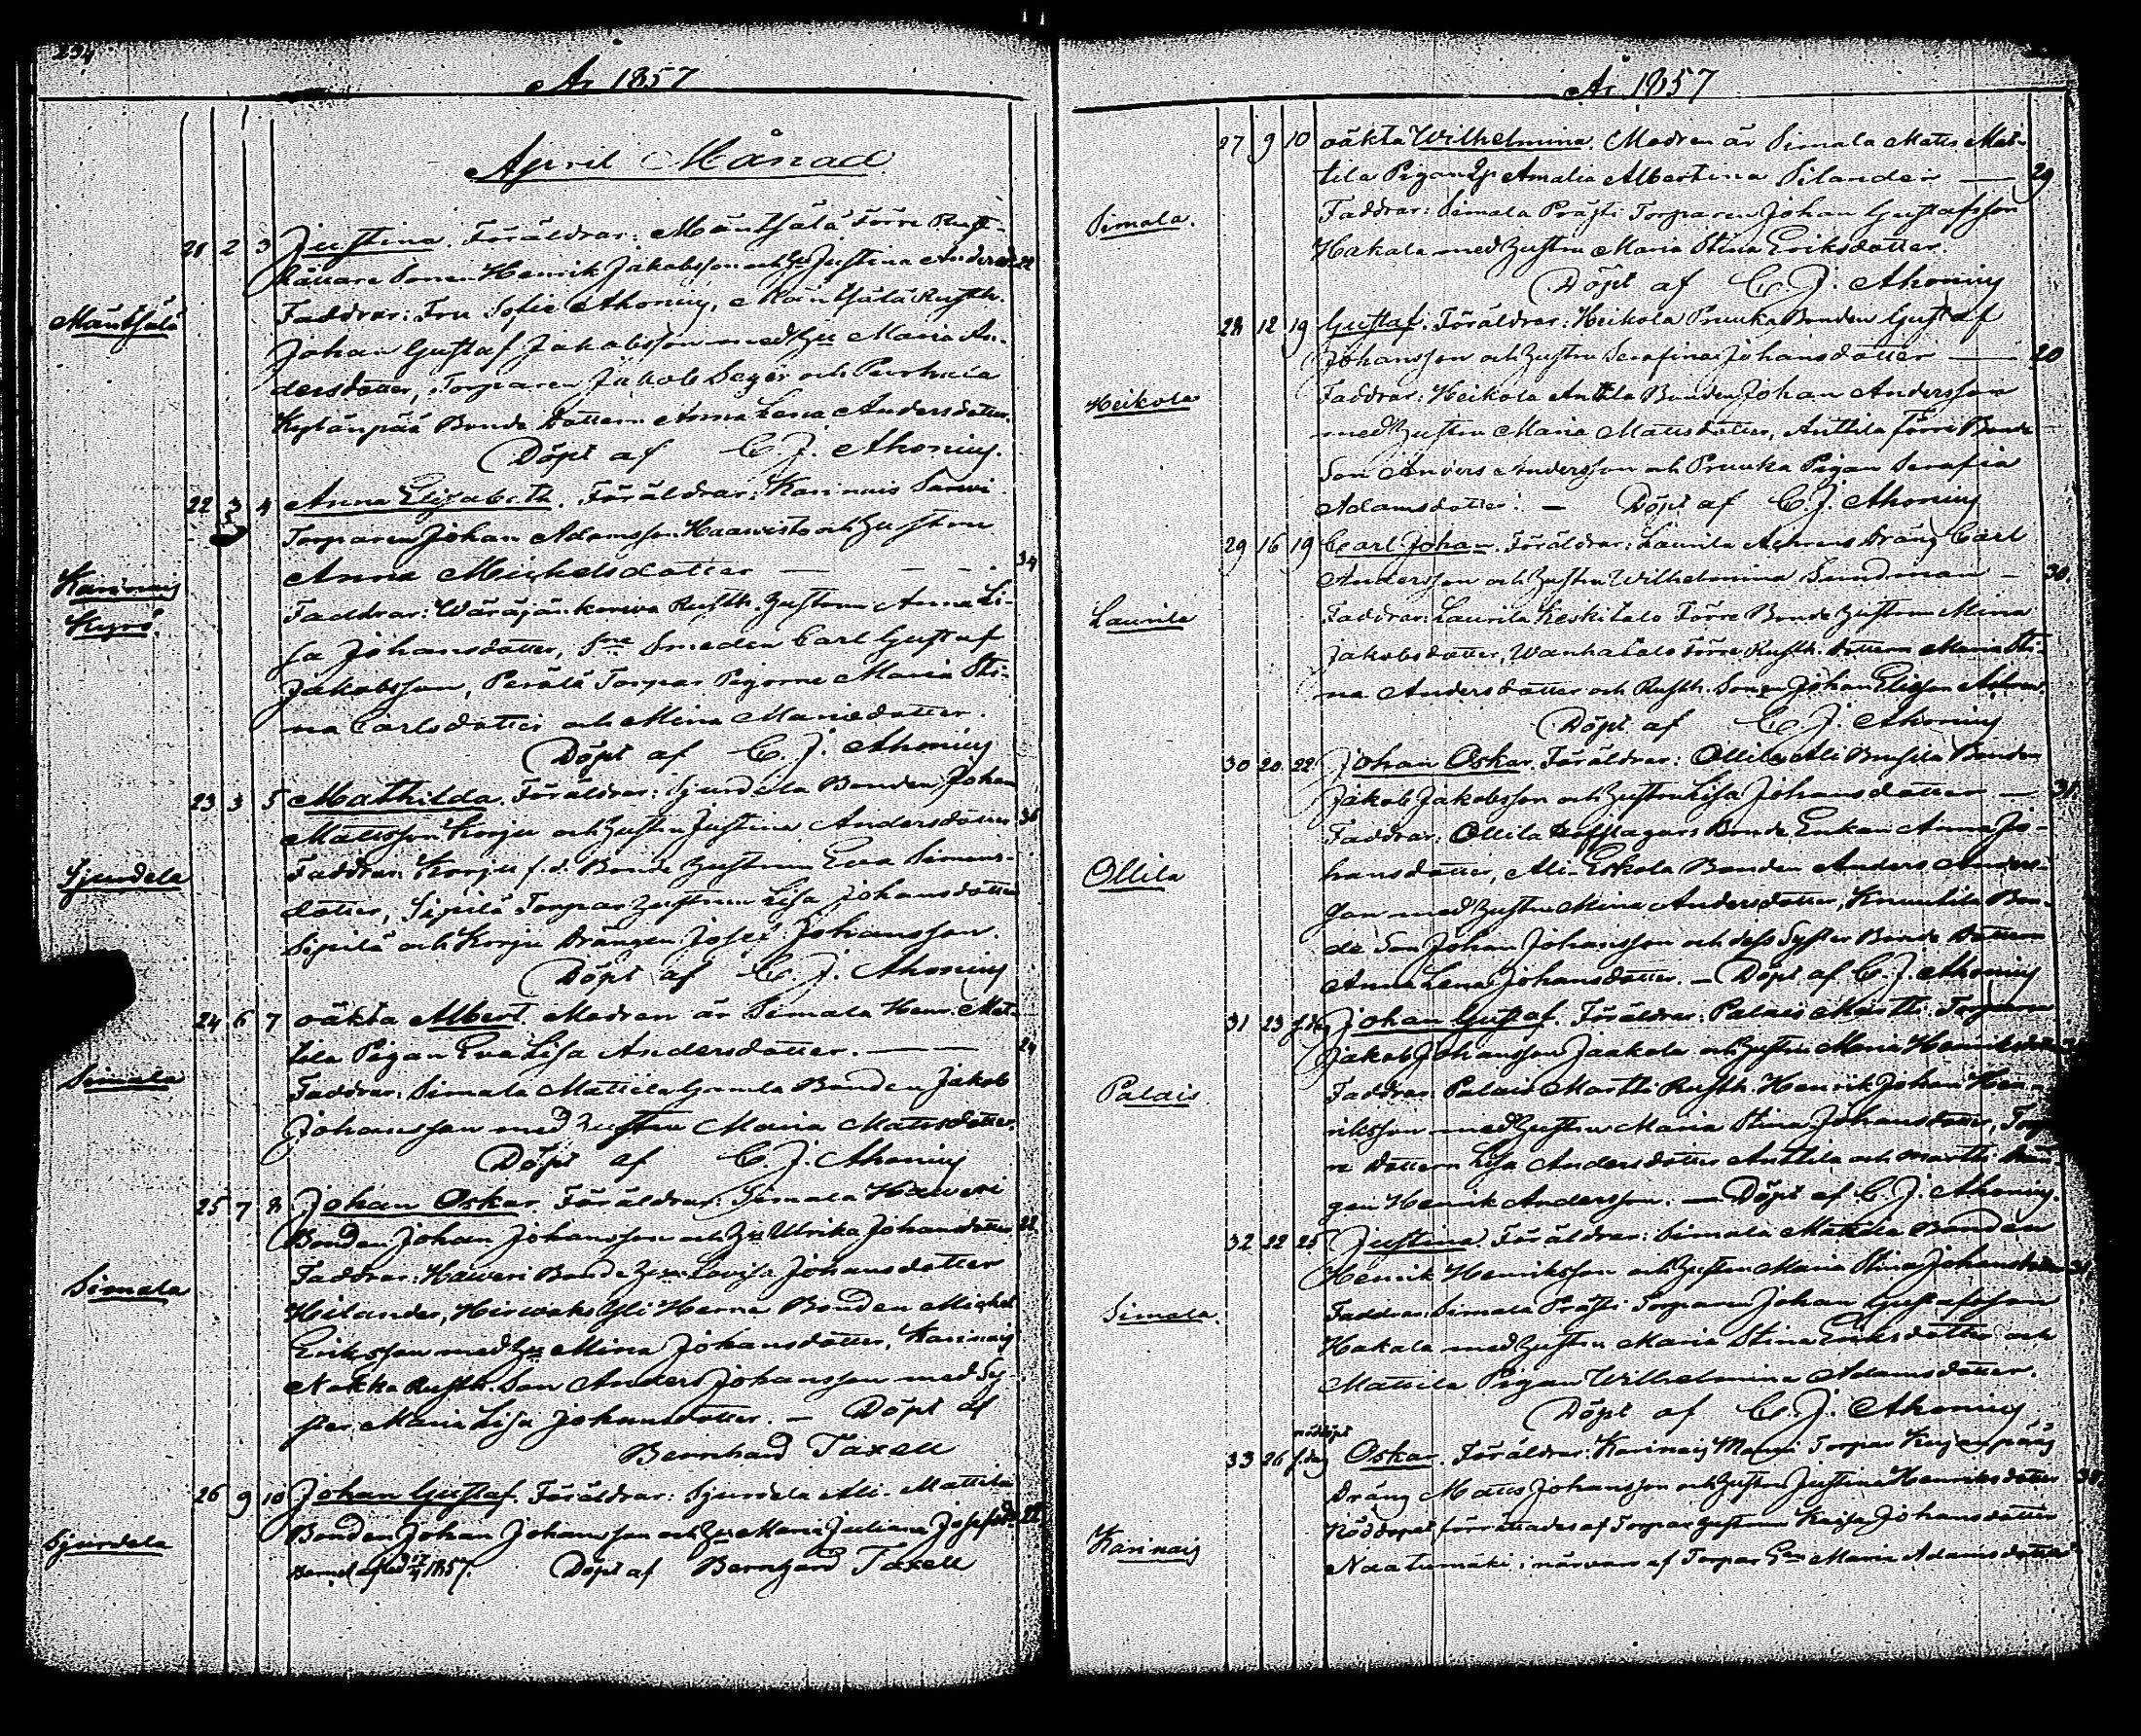 234
År 1857
April Månad
Mäntsälä
21 2 3 Justina. Föräldrar: Mäntsälä Förre Rust-
hållare Sonen Henrik Jakobsson och Hu Justina Andersd. 22
Faddrar: Fru Sofie Ahonius, Mäntsälä Rusth.
Johan Gustaf Jakobsson med Hu Maria An-
dersdotter, Torparen Jakob Seger och
Kylänpää Bonde Dottern Anna Lena Andersdotter.
Döpt af C. J. Ahonius.
Karinais
Kyrö.
22 3 4 Anna Elisabeth. Föräldrar: Karinais
Torparen Johan Adamsson Haawisto och Hustrun
Anna Michelsdotter — — — 34
Faddrar: Wäräjänkorwa Rusth. Hustrun Anna Li-
sa Johansdotter, Smeden Carl Gustaf
Jakobsson, Perälä Torpar Pigorne Maria Sti-
na Carlsdotter och Mina Mariedotter.
Döpt af C. J. Ahonius
Sjurdela
23 3 5 Mathilda. Föräldrar: Sjurdela Bonden Johan
Mattsson Korju och Hustru Justina Andersdotter
Faddrar: Korju f.d. Bonde Hustrun Eva Simons-
dotter, Sipilä Torpar Hustrun Lisa Johansdotter
Sipilä och Korju Drängen Josef Johansson.
Döpt af C. J. Ahonius
Simala
24 6 7 oäkta Albert. Modren är Simala Henr. Mat-
tila Pigan Eva Lisa Andersdotter. — — 24
Faddrar: Simala Mattila Gamla Bonden Jakob
Johansson med Hustru Maria Mattsdotter.
Döpt af C. J. Ahonius
Simala
25 7 8 Johan Oskar. Föräldrar: Simala Haweri
Bonden Johan Johansson och Hu Ulrika Johansdotter 22.
Faddrar: Haweri Bonde Lovisa Johansdotter
Heilander, Hirwoks Yli Herna Bonden Michel
Eriksson med Hu Mina Johansdotter, Karinais
Nokka Rusth. Son Anders Johansson med Sy-
ster Maria Lisa Johansdotter. — Döpt af
Bernhard Taxell
Sjurdela
26 9 10 Johan Gustaf. Föräldrar: Sjurdela Ali-Mattila
Bonden Johan Johansson och Hu Maria Juliana Josefsd. 22
Barnet afled 17/4 1857. Döpt af Bernhard Taxell
År 1857
Simala.
27 9 10 oäkta Wilhelmina. Modren är Simala Matts Mat-
tila Pigan Amalia Albertina Silander — 29
Faddrar: Simala Prästi Torparen Johan Gustafsson
Hakala med Hustru Maria Stina Eriksdotter.
Döpt af C. J. Ahonius
Heikola
28 12 19 Gustaf. Föräldrar: Heikola Pruuka Bonden Gustaf
Johansson och Hustru Serafina Johansdotter — 20
Faddrar: Heikola Anttila Bonden Johan Andersson
med Hustru Maria Mattsdotter, Anttila förre Bonde
Son Anders Andersson och Pruuka Pigan Serafia
Adamsdotter. — Döpt af C. J. Ahonius
Laurila
29 16 19 Carl Johan. Föräldrar: Laurila Dräng Carl
Andersson och Hustru Wilhelmina Sundman — 30.
Faddrar: Laurila Keskitalo Förre Bonde Hustrun Mina
Jakobsdotter, Wanhatalo Förre Rusth. Dottern Maria Sti-
na Andersdotter och Rusth. Sonen Johan
Döpt af C. J. Ahonius
Ollila
30 20 22 Johan Oskar. Föräldrar: Ollila Ali Bonden
Jakob Jakobsson och Hustru Lisa Johansdotter — 31.
Faddrar: Ollila Bonde Enkan Anna Jo-
hansdotter, Ali-Eskola Bonden Anders Anders-
son med Hustru Mina Andersdotter, Knuutila Bon-
de Son Johan Johansson och dess Syster Bonde Dottern
Anna Lena Johansdotter. — Döpt af C. J. Ahonius
Palais.
31 23 s.dag Johan Gustaf. Föräldrar: Palais Martti Torparen
Jakob Johansson Jaakola och Hustru Maria Henriksdotter
Faddrar: Palais Martti Rusth. Henrik Johan Hen-
riksson med Hustru Maria Stina Johansdotter, Torpa-
re Dottern Lisa Andersdotter Anttila och Martti Drän-
gen Henrik Andersson. — Döpt af C. J. Ahonius.
Simala.
32 22 25 Justina. Föräldrar: Simala Mattila Bonden
Henrik Henriksson och Hustru Maria Stina Johansdotter
Faddrar: Simala Prästi Torparen Johan Gustafsson
Hakala med Hustru Maria Stina Eriksdotter och
Mattila Pigan Wilhelmina Adamsdotter.
Döpt af C. J. Ahonius
Karinais
nöddöpt
33 26 s.dag Oskar. Föräldrar: Karinais Torpar
Dräng Matts Johansson och Hustru Justina Henriksdotter
Nöddopet förrättades af Torpar Hustrun Kaisa Johansdotter
Naatumäki i närvaro af Torpar Maria Adamsdotter